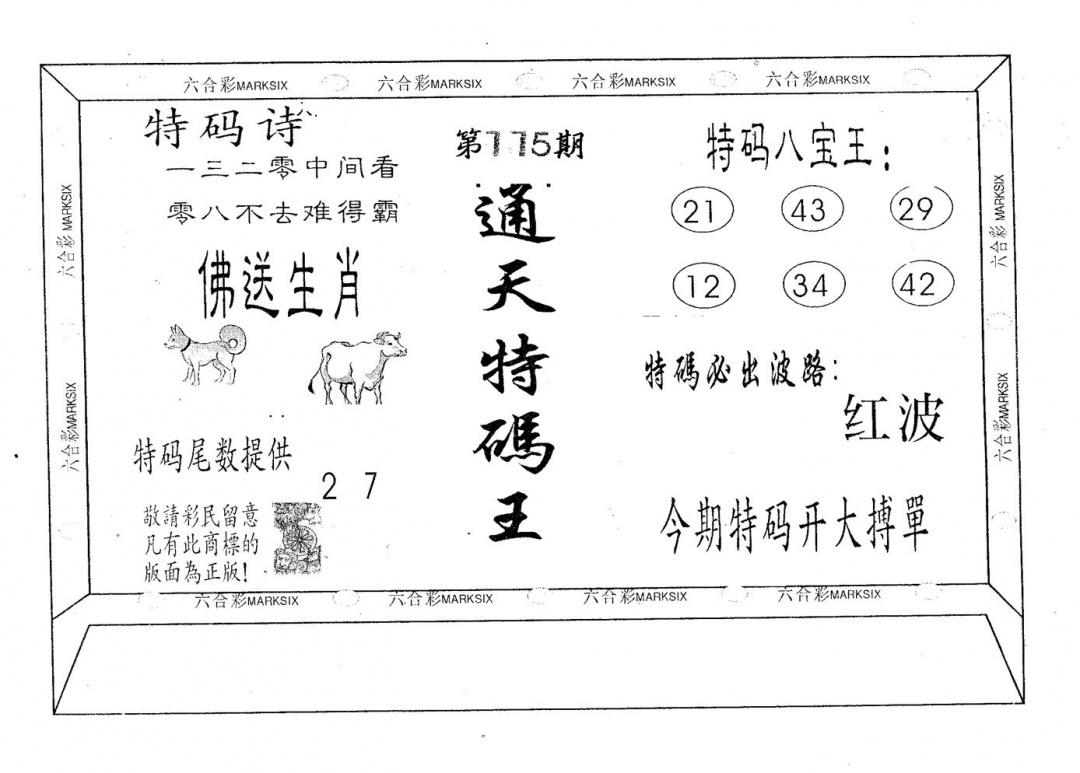 六合彩MARKSIX 六合彩MARKSIX 六合彩MARKSIX 六合彩MARKSIX
特码诗
一三二零中间看
零八不去难得霸
佛送生肖
特码尾数提供
2 7
敬請彩民留意
凡有此商標的
版面為正版!
第115期
通天特碼王
特码八宝王:
21 43 29
12 34 42
特碼必出波路:
红波
今期特码开大搏單
六合彩 MARKSIX
六合彩MARKSIX
六合彩 MARKSIX
六合彩MARKSIX
六合彩MARKSIX 六合彩MARKSIX 六合彩MARKSIX 六合彩MARKSIX